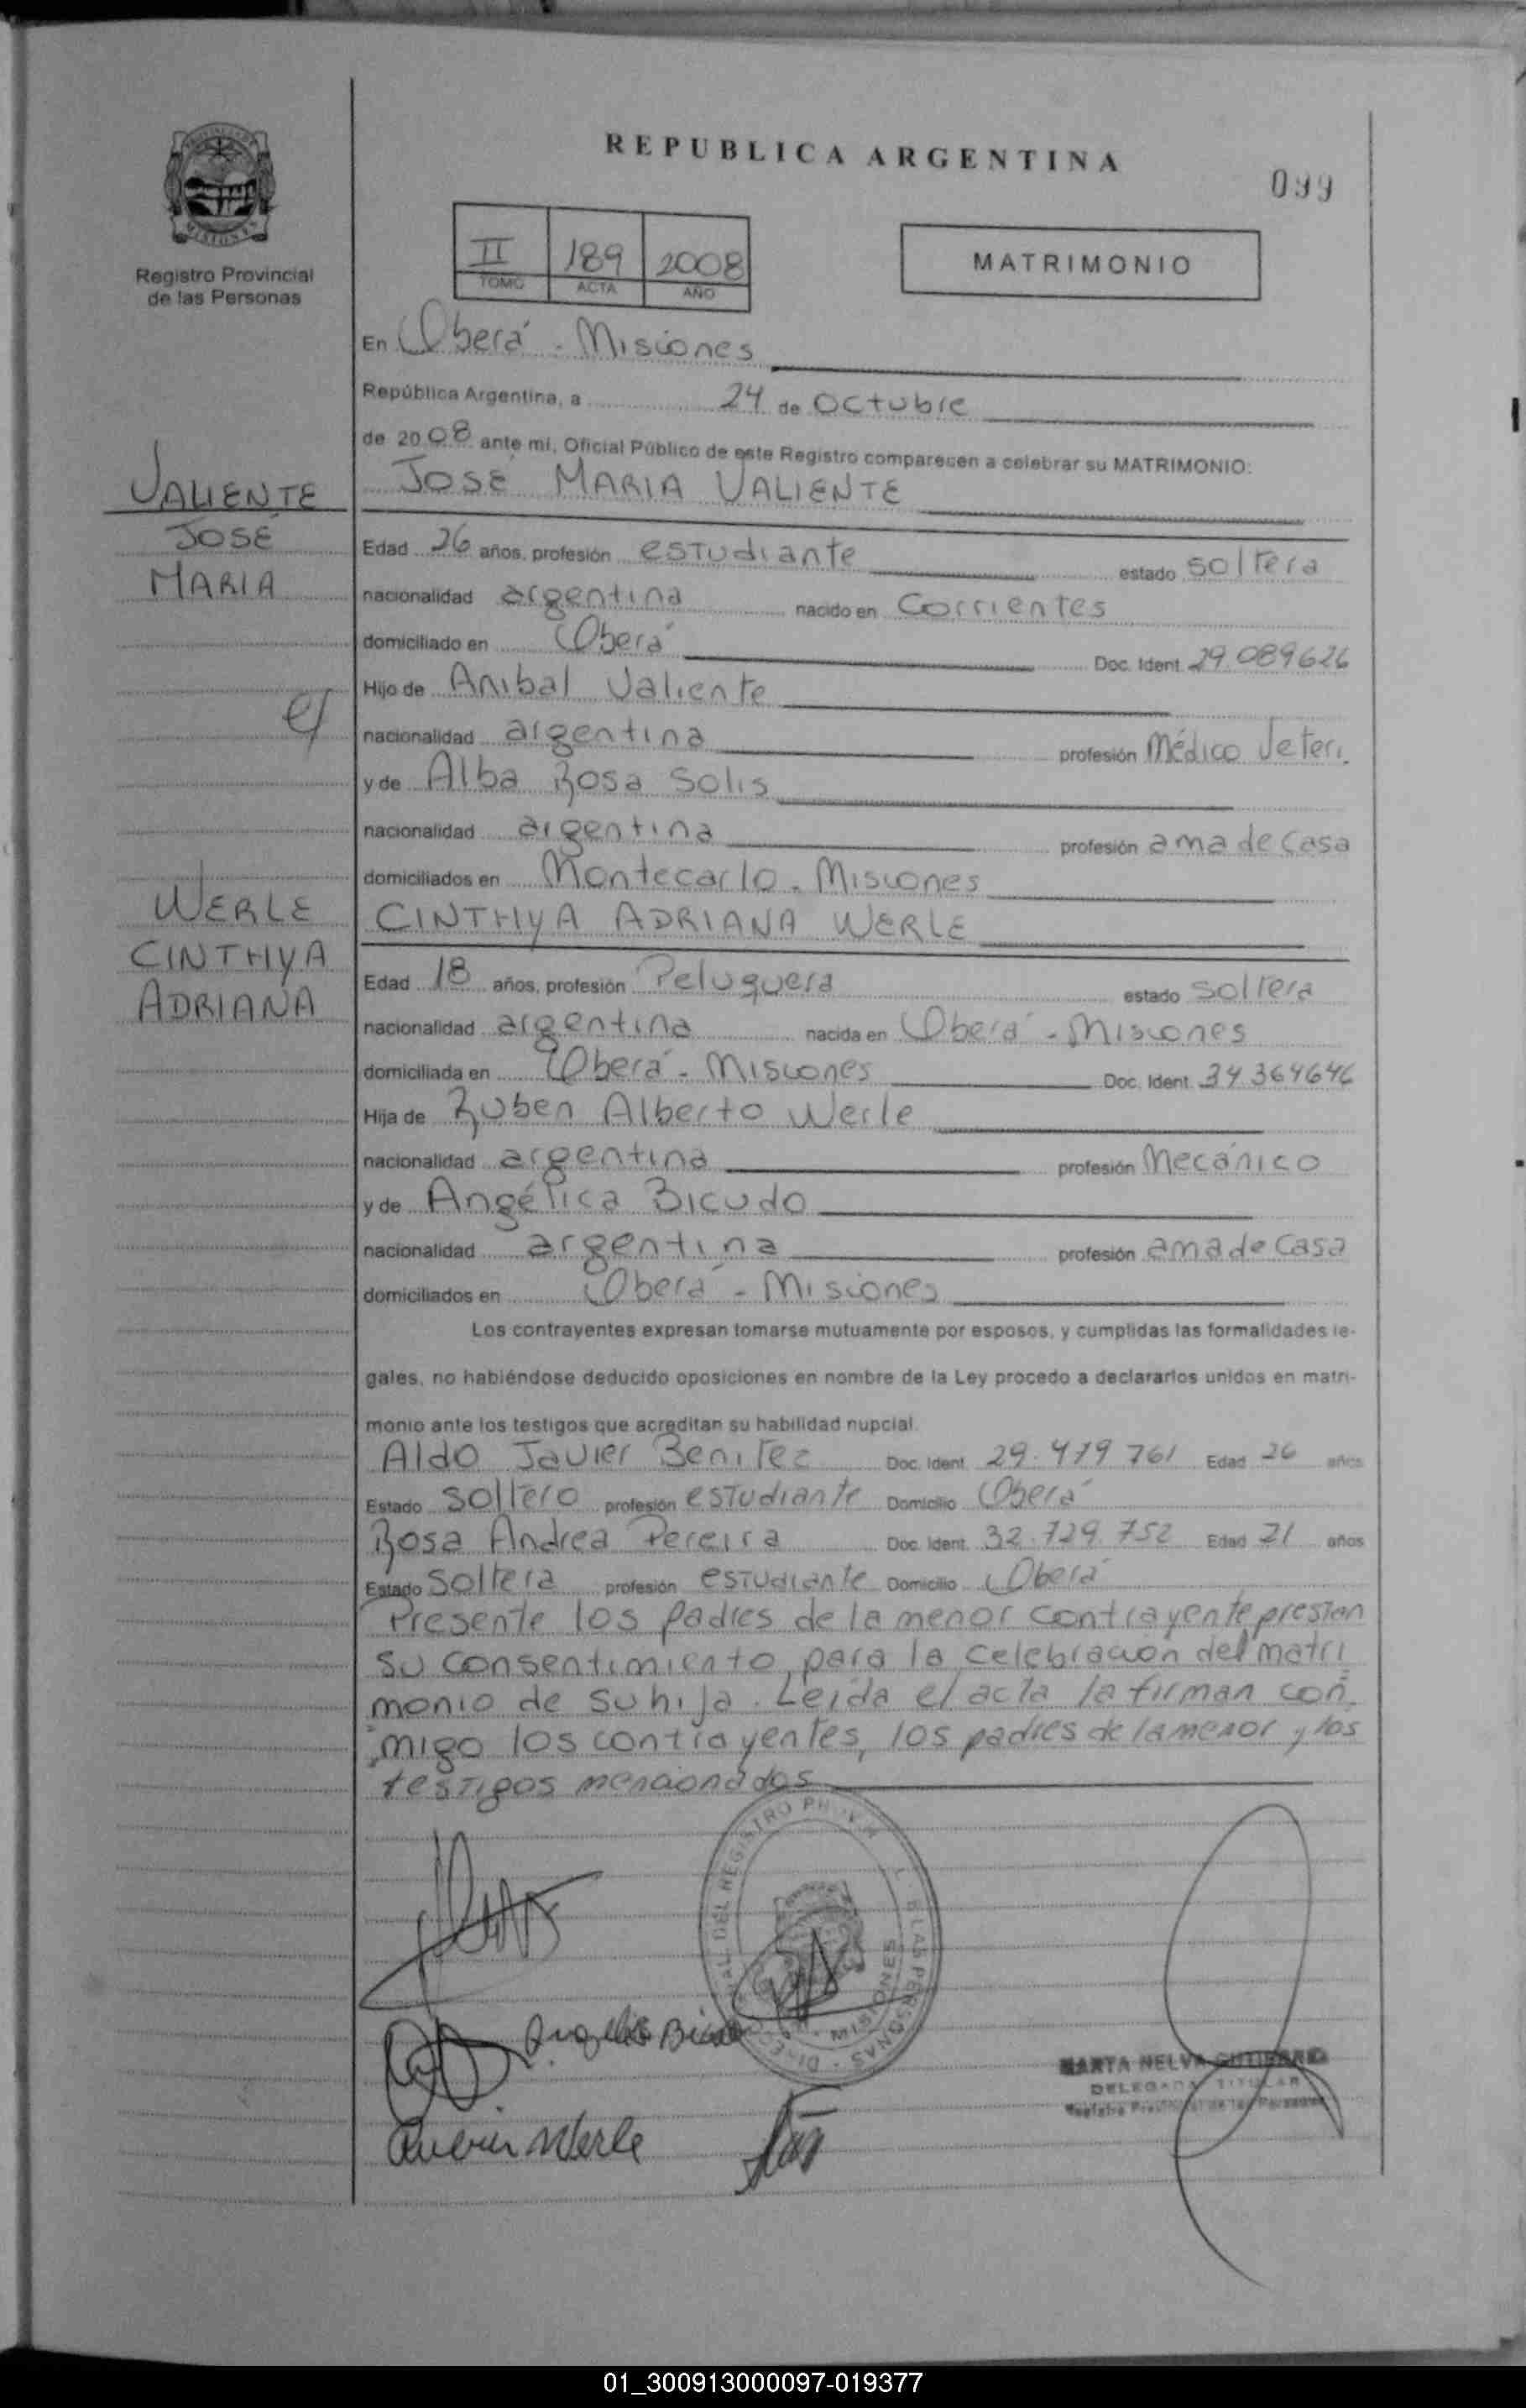 REPUBLICA ARGENTINA
099
Registro Provincial
de las Personas
II 189 2008
TOMO ACTA AÑO
MATRIMONIO
En Oberá - Misiones
República Argentina, a 24 de Octubre
de 2008 ante mi, Oficial Público de este Registro comparecen a celebrar su MATRIMONIO:
JOSÉ MARIA VALIENTE
VALIENTE
JOSÉ
MARIA
Edad 26 años, profesión estudiante estado soltera
nacionalidad argentina nacido en Corrientes
domiciliado en Oberá Doc. Ident. 29.089626
Hijo de Anibal Valiente
nacionalidad argentina profesión Médico Veteri.
y de Alba Rosa Solis
nacionalidad argentina profesión ama de casa
domiciliados en Montecarlo - Misiones
CINTHYA ADRIANA WERLE
WERLE
CINTHYA
ADRIANA
Edad 18 años, profesión Peluquera estado soltera
nacionalidad argentina nacida en Oberá - Misiones
domiciliada en Oberá - Misiones Doc. Ident. 34364646
Hija de Ruben Alberto Werle
nacionalidad argentina profesión Mecánico
y de Angélica Bicudo
nacionalidad argentina profesión ama de casa
domiciliados en Oberá - Misiones
Los contrayentes expresan tomarse mutuamente por esposos, y cumplidas las formalidades le-
gales, no habiéndose deducido oposiciones en nombre de la Ley procedo a declararlos unidos en matri-
monio ante los testigos que acreditan su habilidad nupcial.
Aldo Javier Benitez Doc. Ident. 29.479 761 Edad 26 años
Estado soltero profesión estudiante Domicilio Oberá
Rosa Andrea Pereira Doc. Ident. 32.729.752 Edad 21 años
Estado soltera profesión estudiante Domicilio Oberá
Presente los padres de la menor contrayente prestan
su consentimiento, para la celebración del matri
monio de su hija. Leida el acta la firman con
migo los contrayentes, los padres de la menor y los
testigos mencionados
Angelica
Ruben Werle
MARTA NELVA
DELEGADA TITULAR
Registro Provincial de las Personas
MISIONES
01_300913000097-019377